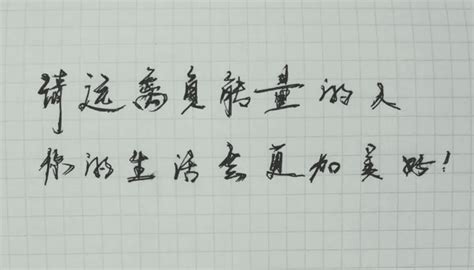 请远离负能量的人
你的生活会更加美好!